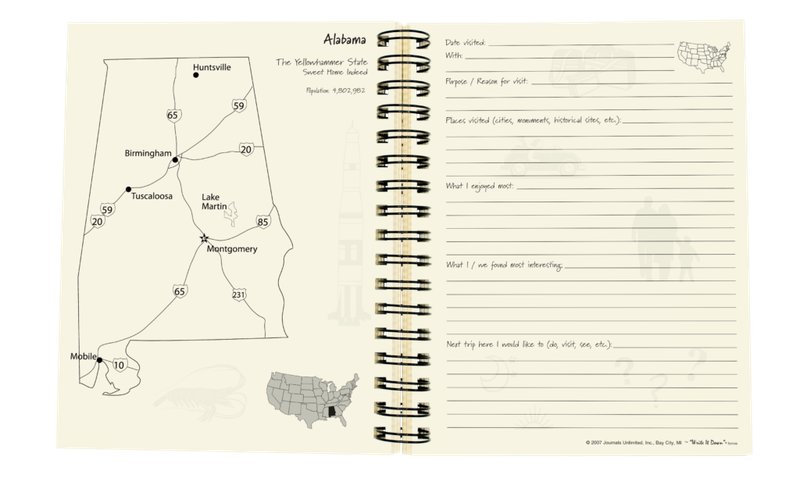 Alabama
The Yellowhammer State
Sweet Home Indeed
Population: 4,802,982
Huntsville
65
59
Birmingham
20
Tuscaloosa
Lake
Martin
59
20
85
Montgomery
65
231
Mobile
10
Date visited:
With:
Purpose / Reason for visit:
Places visited (cities, monuments, historical sites, etc.):
What I enjoyed most:
What I / we found most interesting:
Next trip here I would like to (do, visit, see, etc.):
? ? ?
© 2007 Journals Unlimited, Inc., Bay City, MI "Write It Down"